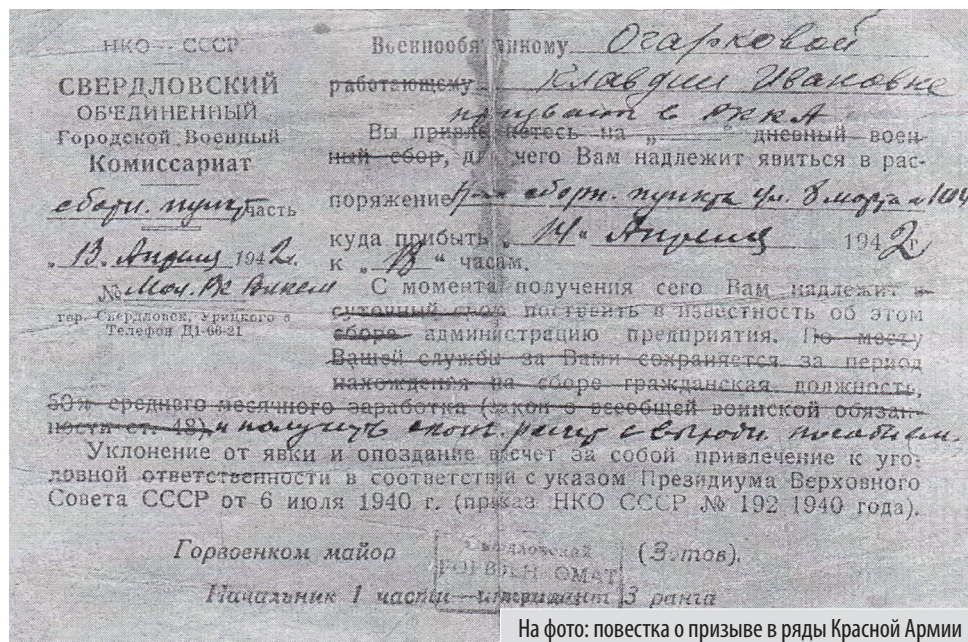 НКО — СССР
СВЕРДЛОВСКИЙ
ОБЪЕДИНЕННЫЙ
Городской Военный
Комиссариат
сборн. пункт часть
„ 13 „ Апреля 1942 г.
№
гор. Свердловск, Урицкого
Телефон Д1-66-21
Военнообязанному Огарковой
работающему Клавдии Ивановне
призывают в РККА
Вы привлекаетесь на „ “ дневный воен-
ный сбор, для чего Вам надлежит явиться в рас-
поряжение сборн. пункта ул. 8 марта
куда прибыть „ 14 “ Апреля 1942 г.
к „ 18 “ часам.
С момента получения сего Вам надлежит в
суточный срок поставить в известность об этом
сборе администрацию предприятия. По месту
Вашей службы за Вами сохраняется за период
нахождения на сборе гражданская должность,
50% среднего месячного заработка (закон о всеобщей воинской обязан-
ности ст. 48) и получить расчет с выходн. пособием.
Уклонение от явки и опоздание влечет за собой привлечение к уго-
ловной ответственности в соответствии с указом Президиума Верховного
Совета СССР от 6 июля 1940 г. (приказ НКО СССР № 192 1940 года).
Горвоенком майор (Зотов).
Свердловский
ГОРВОЕНКОМАТ
Начальник 1 части интендант 3 ранга
На фото: повестка о призыве в ряды Красной Армии